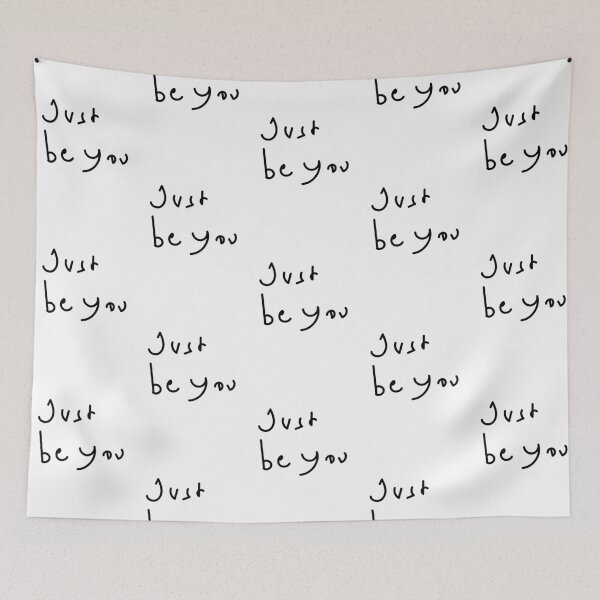 be you
be you
Just
be you
Just
be you
Just
be you
Just
be you
Just
be you
Just
be you
Just
be you
Just
be you
Just
be you
Just
be you
Just
be you
Just
be you
Just
be you
Just
Just